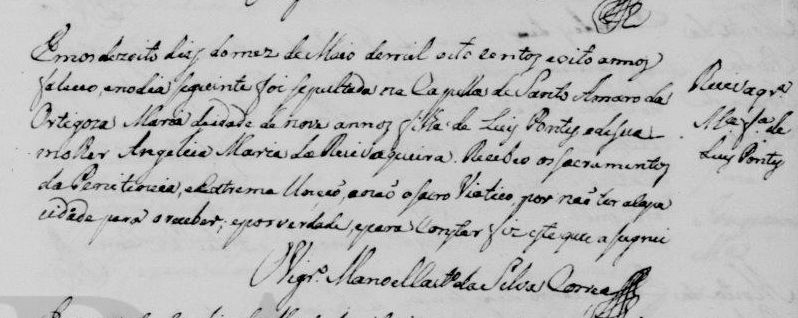 Em os dezoito diaz do mez de Maio de mil oito centoz e oito annoz
faleceo, e no dia seguinte foi sepultada na Capella de Santo Amaro da
Ortigoza Maria de idade de nove annoz filha de Luiz Pontez, e de sua
molher Angelica Maria da Ruivaqueira. Recebeo os sacramentoz
da Penitencia, e Extrema Unção, e não o sacro Viatico, por não ter capa
cidade para o receber; e por verdade, e para Constar fiz este que assignei
O Vigr.o Manoel Caet.o da Silva Correa
Ruivaqr.a
M.a f.a de
Luiz Pontez